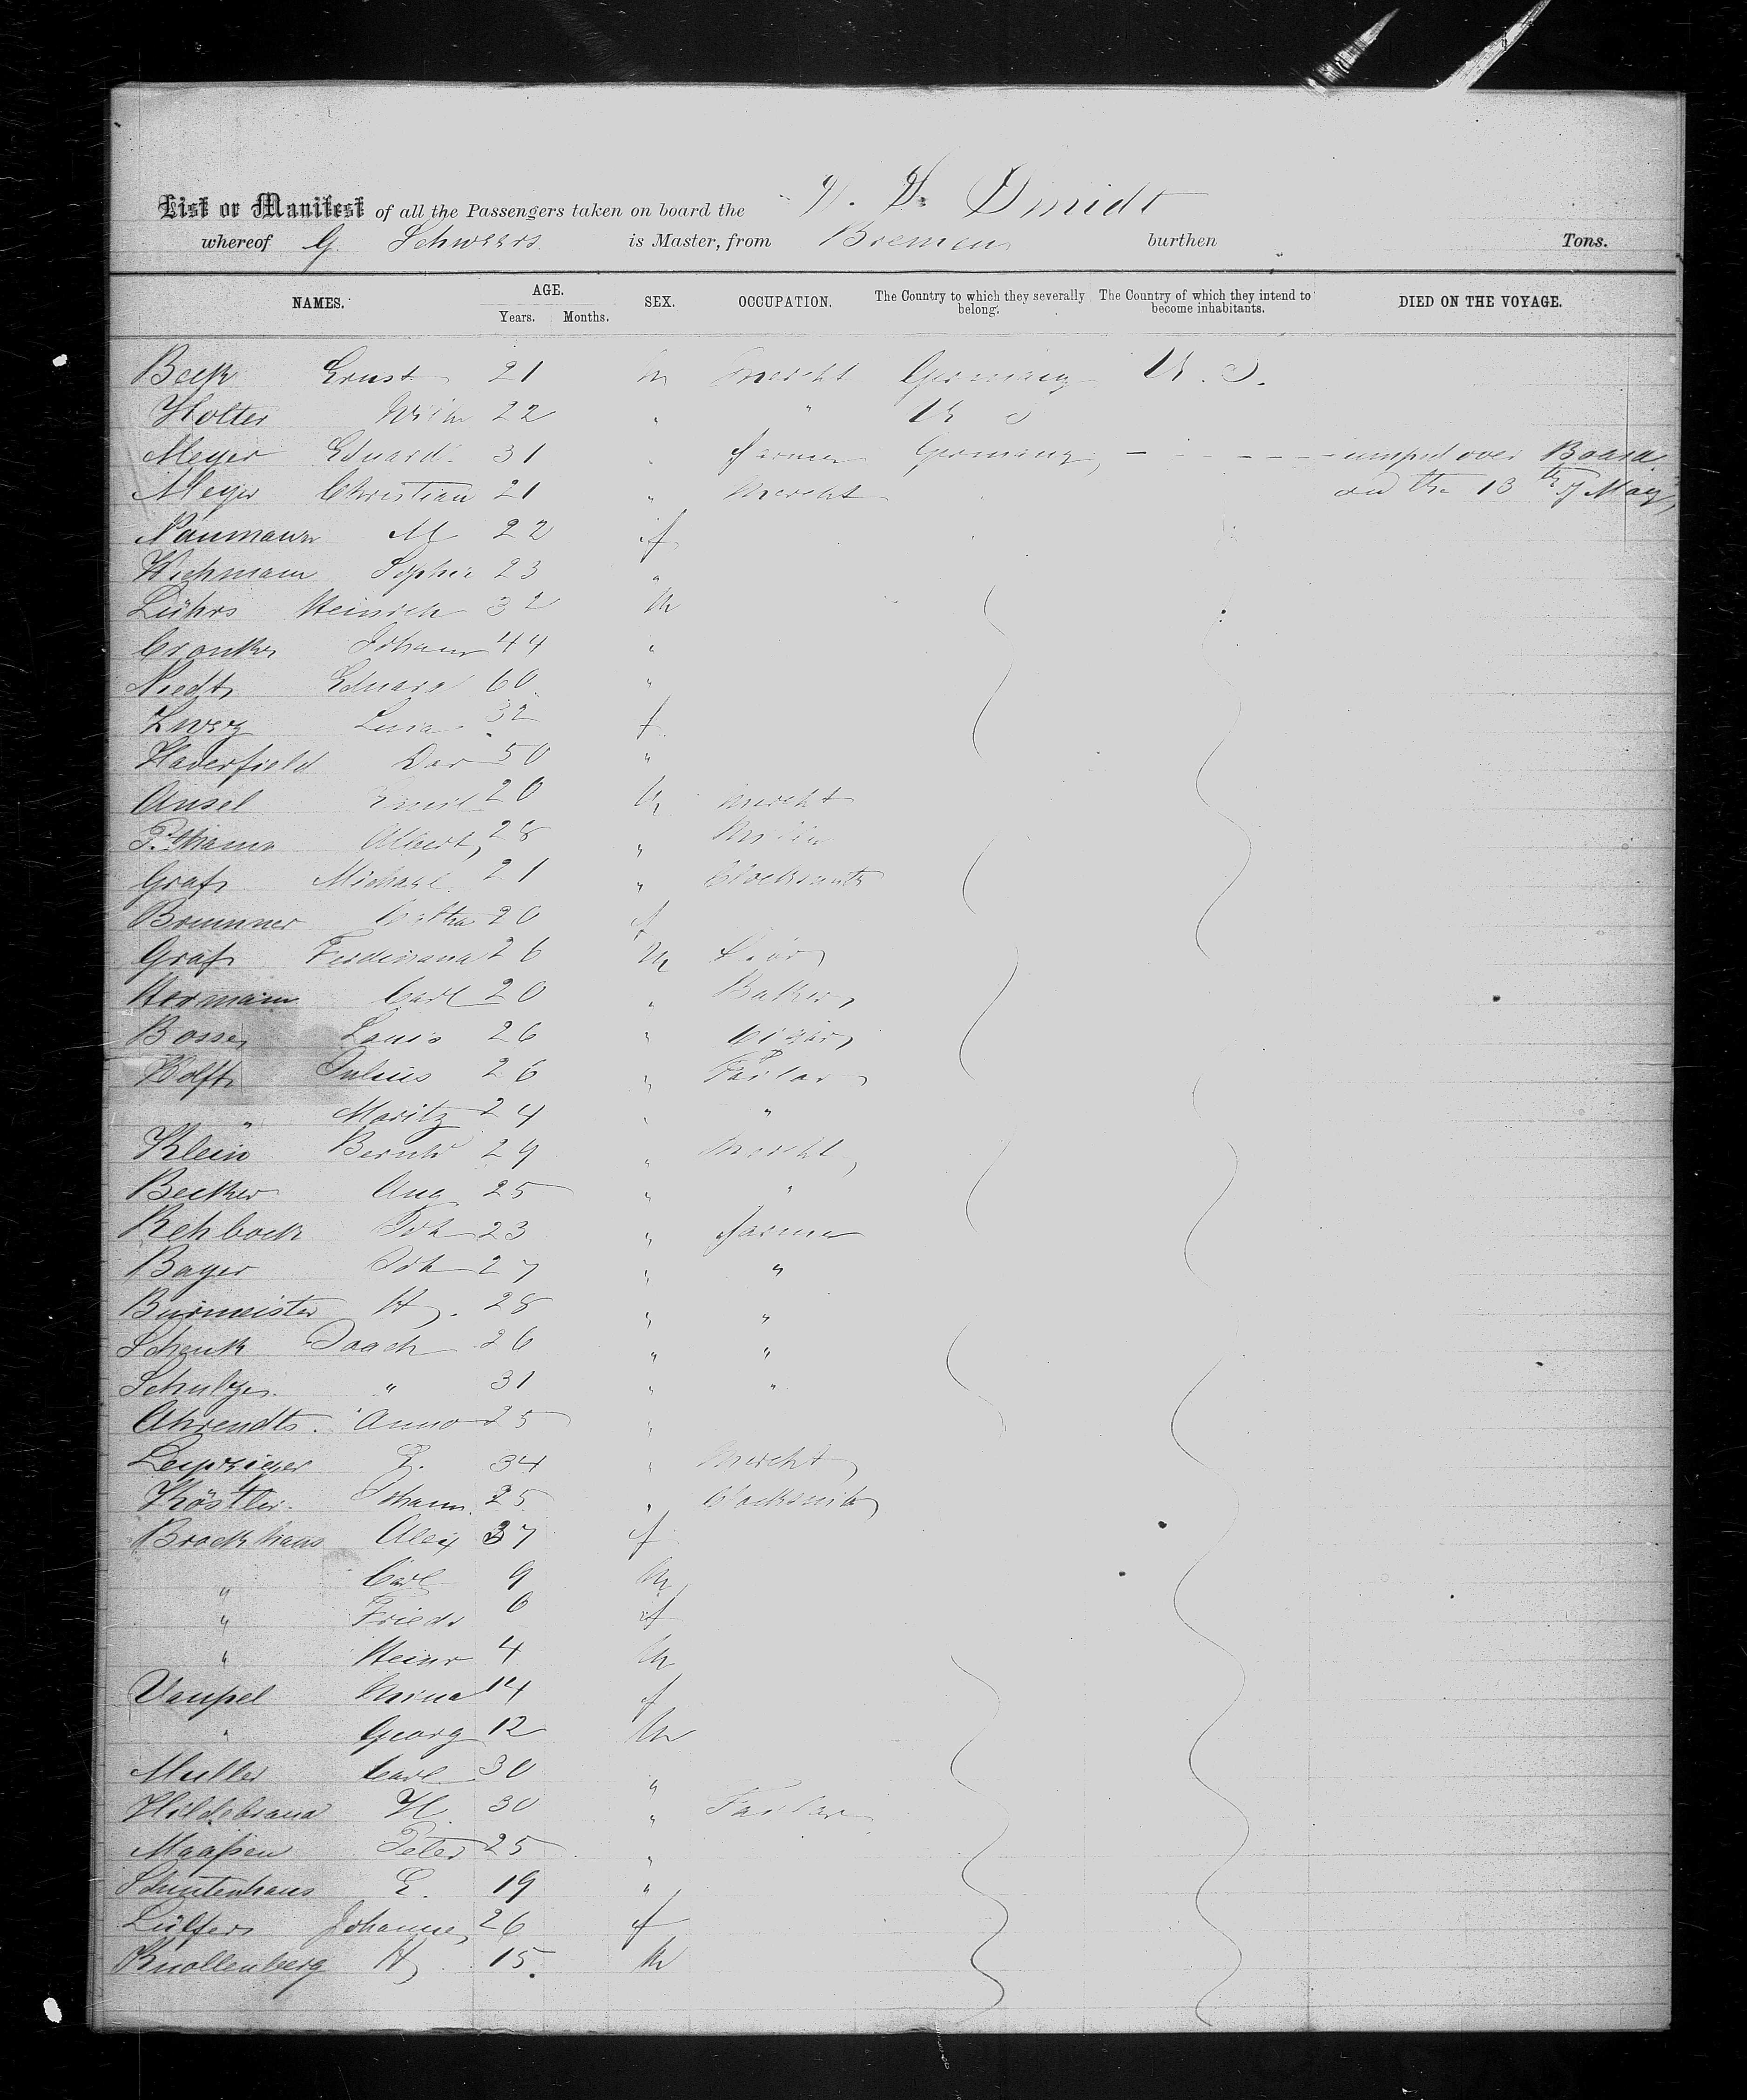 List or Manifest of all the Passengers taken on board the D. H. Smidt
whereof G. Schweers is Master, from Bremen burthen Tons.
NAMES. AGE. Years. Months. SEX. OCCUPATION. The Country to which they severally belong. The Country of which they intend to become inhabitants. DIED ON THE VOYAGE.
Beck Ernst 21 m Mercht Germany U. S.
Holter 22 " " U S
Meyer Eduard 31 " farmer Germany, jumped over Board
Meyer Christian 21 " Mercht on the 13th of May,
Naumann M 22 f
Wichmann Sophie 23 "
Lührs Heinrich 32 m
Johann 44 "
Eduard 60 "
32 f
Haverfield 50 "
Ansel Emil 20 m Mercht
Albert, 28 "
Graf Michael 21 " Blacksmith
Brunner 20 f
Graf Ferdinand 26 m
Hermann Carl 20 " Baker,
Bosse, Louis 26 " Cigar,
Julius 26 " Tailor
" Moritz 24 " "
Klein Bernh 29 " Mercht,
Becker Aug 25 " "
Rehbock Joh 23 " farmer
Bayer Joh 27 " "
Burmeister H. 28 " "
Schenk Joach 26 " "
Schultze " 31 " "
Ahrendts. Anno 25 "
Leipziger 34 " Mercht,
Köstler. Johann 25 " Blacksmith,
Brockhaus Alex 37 f
" Carl 9 m
" Friedr 6 f
" Heinr 4 m
Vaupel Mina 14 f
" Georg 12 m
Muller Carl 30 "
Hildebrand H. 30 " Tailor
Maaßen Peter 25 "
E. 19 "
Lülfers Johanne, 26 f
Knollenberg H 15. m